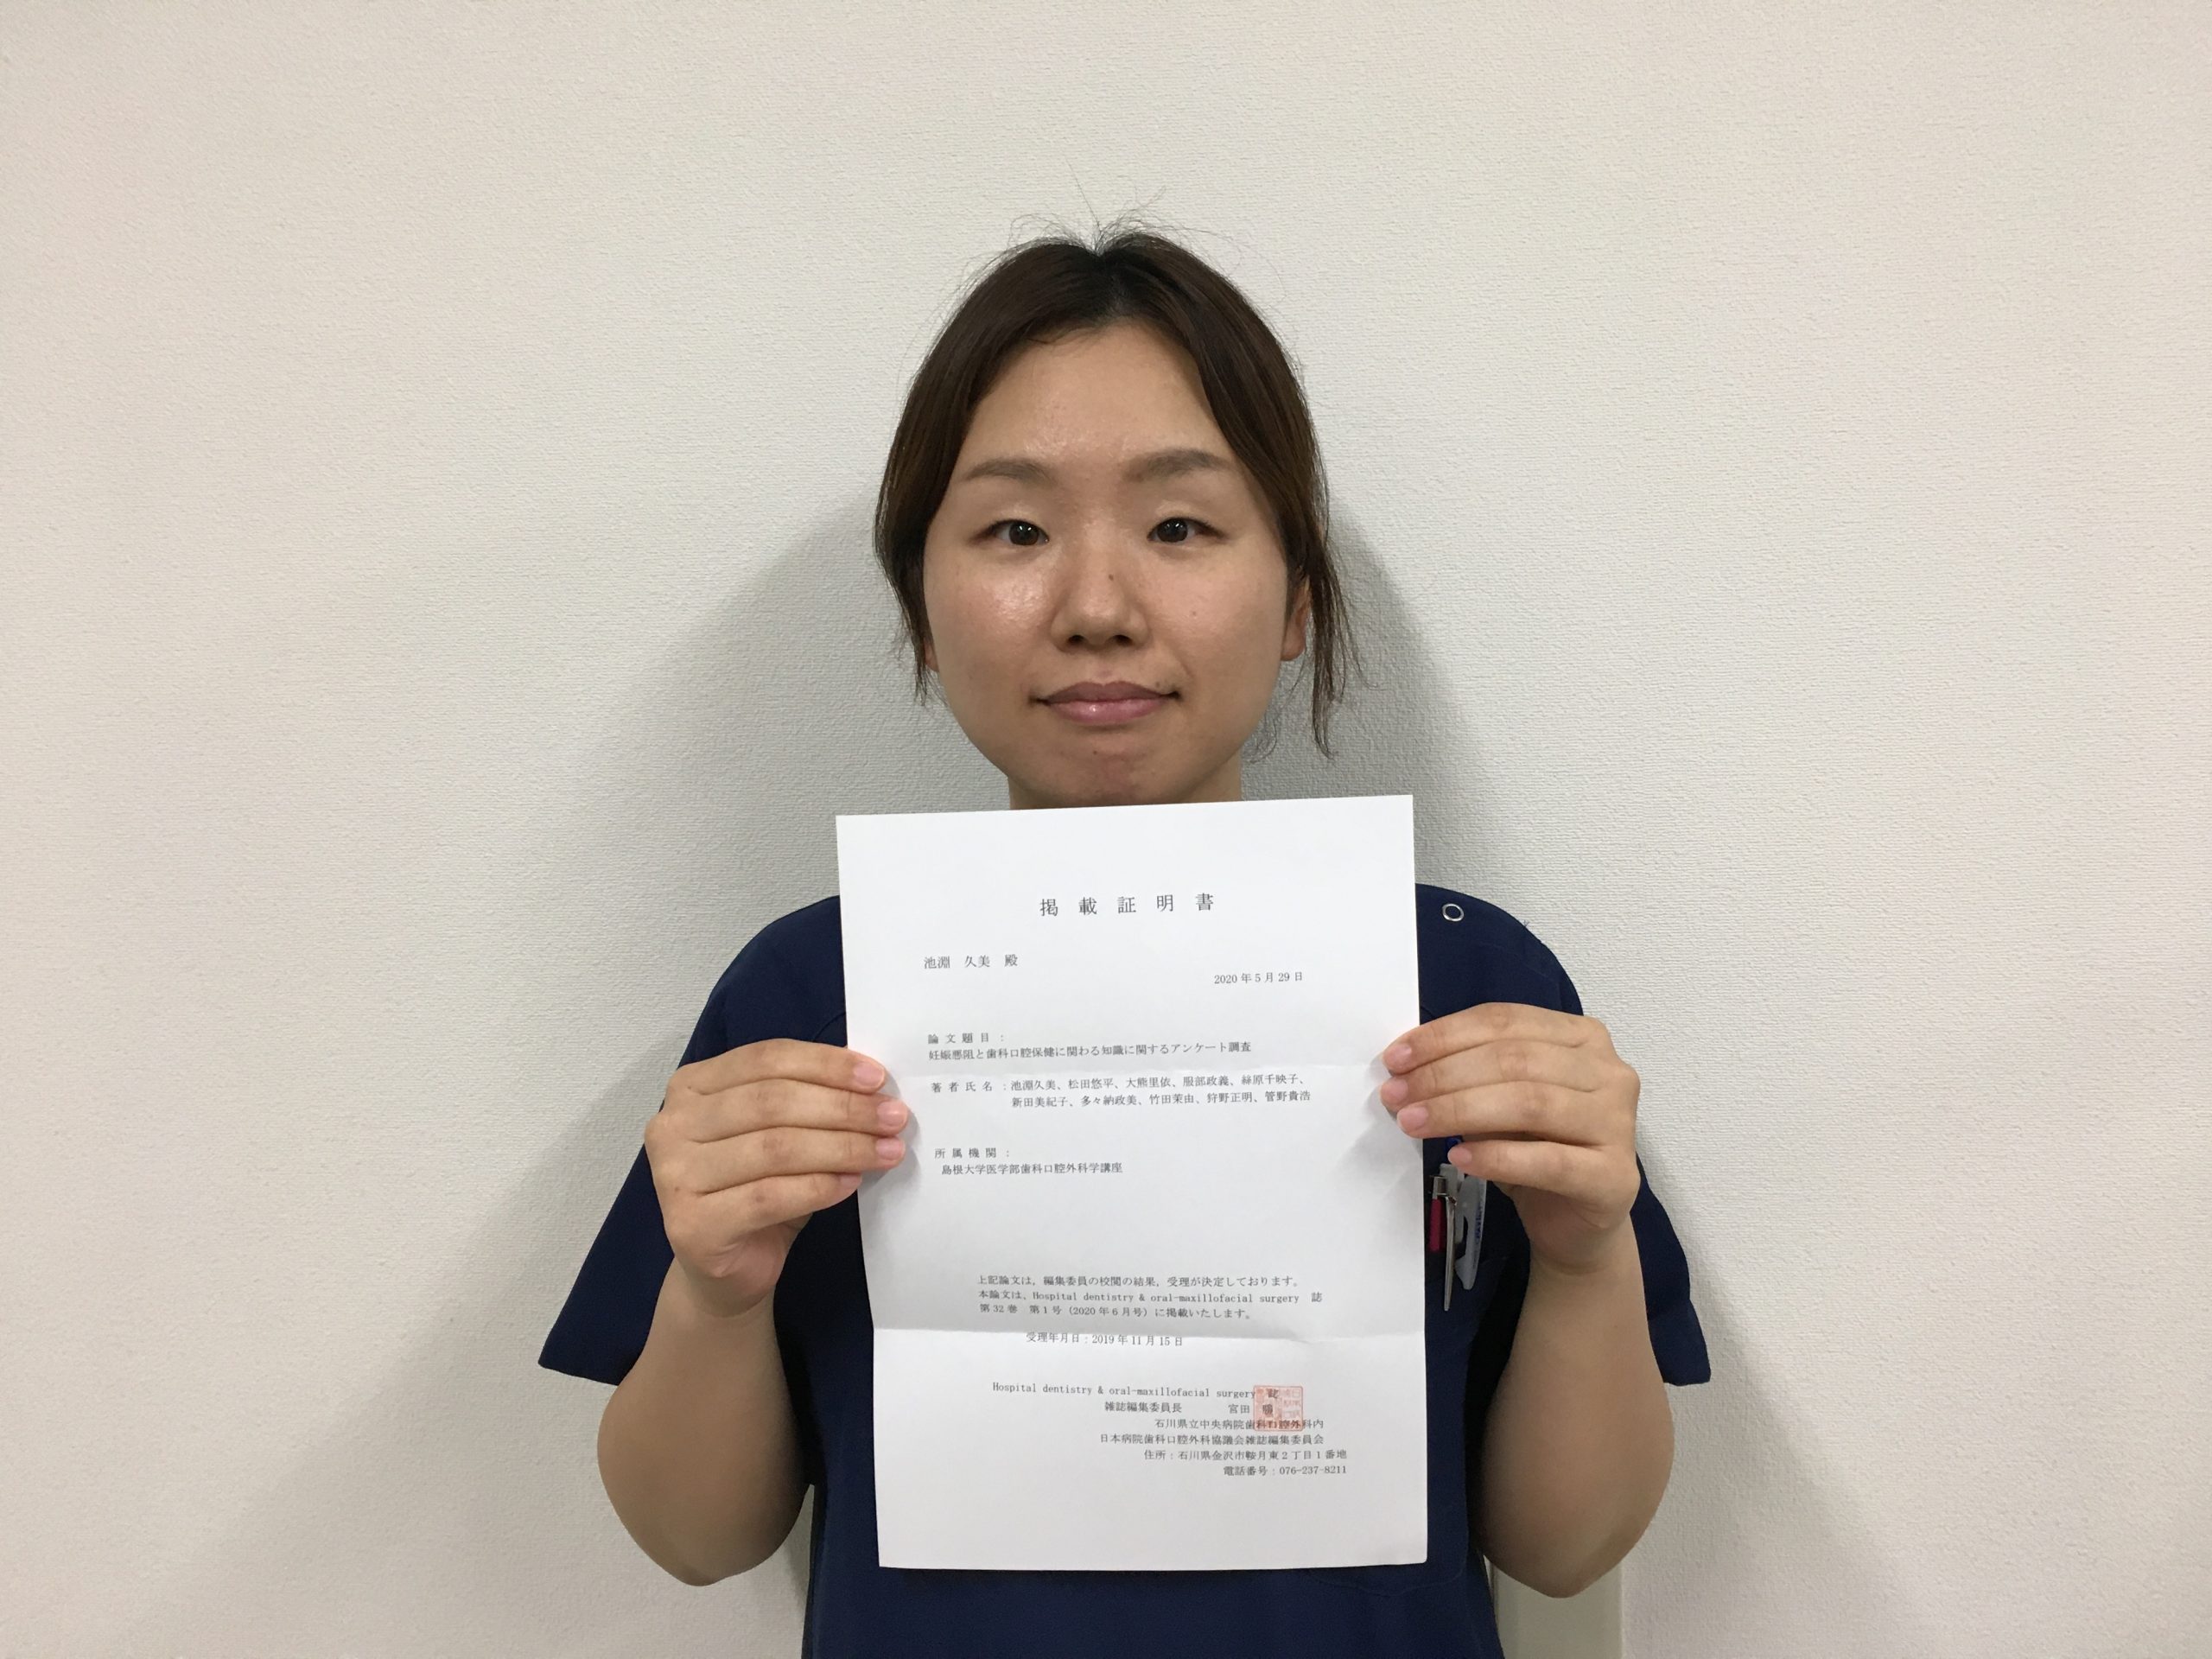 掲載証明書
池淵 久美 殿
2020年5月29日
論文題目：
妊娠悪阻と歯科口腔保健に関わる知識に関するアンケート調査
著者氏名：池淵久美、松田悠平、大熊里依、服部政義、絲原千映子、
新田美紀子、多々納政美、竹田茉由、狩野正明、管野貴浩
所属機関：
島根大学医学部歯科口腔外科学講座
上記論文は，編集委員の校閲の結果，受理が決定しております。
本論文は、Hospital dentistry & oral-maxillofacial surgery 誌
第32巻 第1号（2020年6月号）に掲載いたします。
受理年月日：2019年11月15日
Hospital dentistry & oral-maxillofacial surgery
雑誌編集委員長 宮田
石川県立中央病院歯科口腔外科内
日本病院歯科口腔外科協議会雑誌編集委員会
住所：石川県金沢市鞍月東2丁目1番地
電話番号：076-237-8211